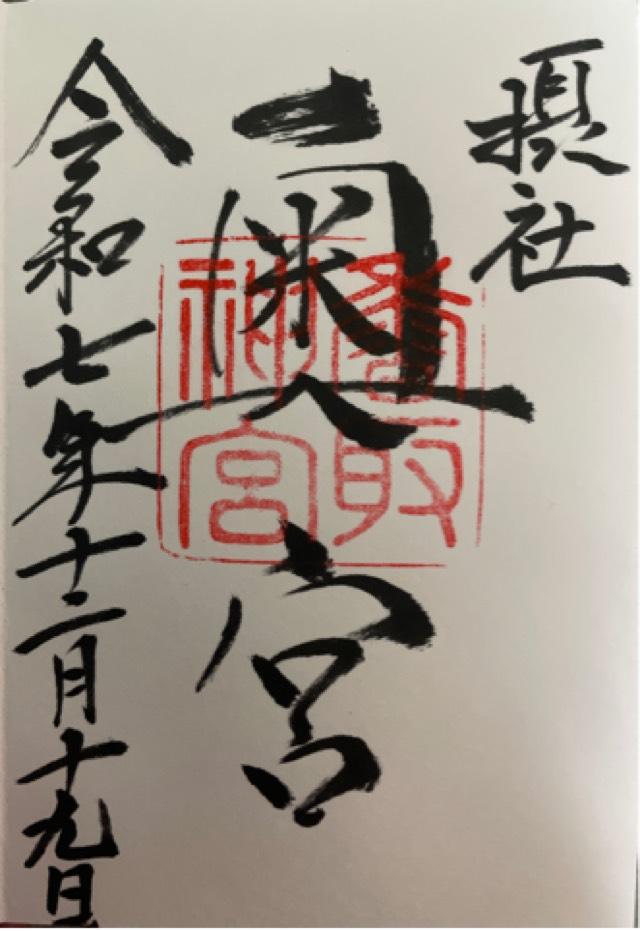 摂社
奥宮
香取
神宮
令和七年十二月十九日